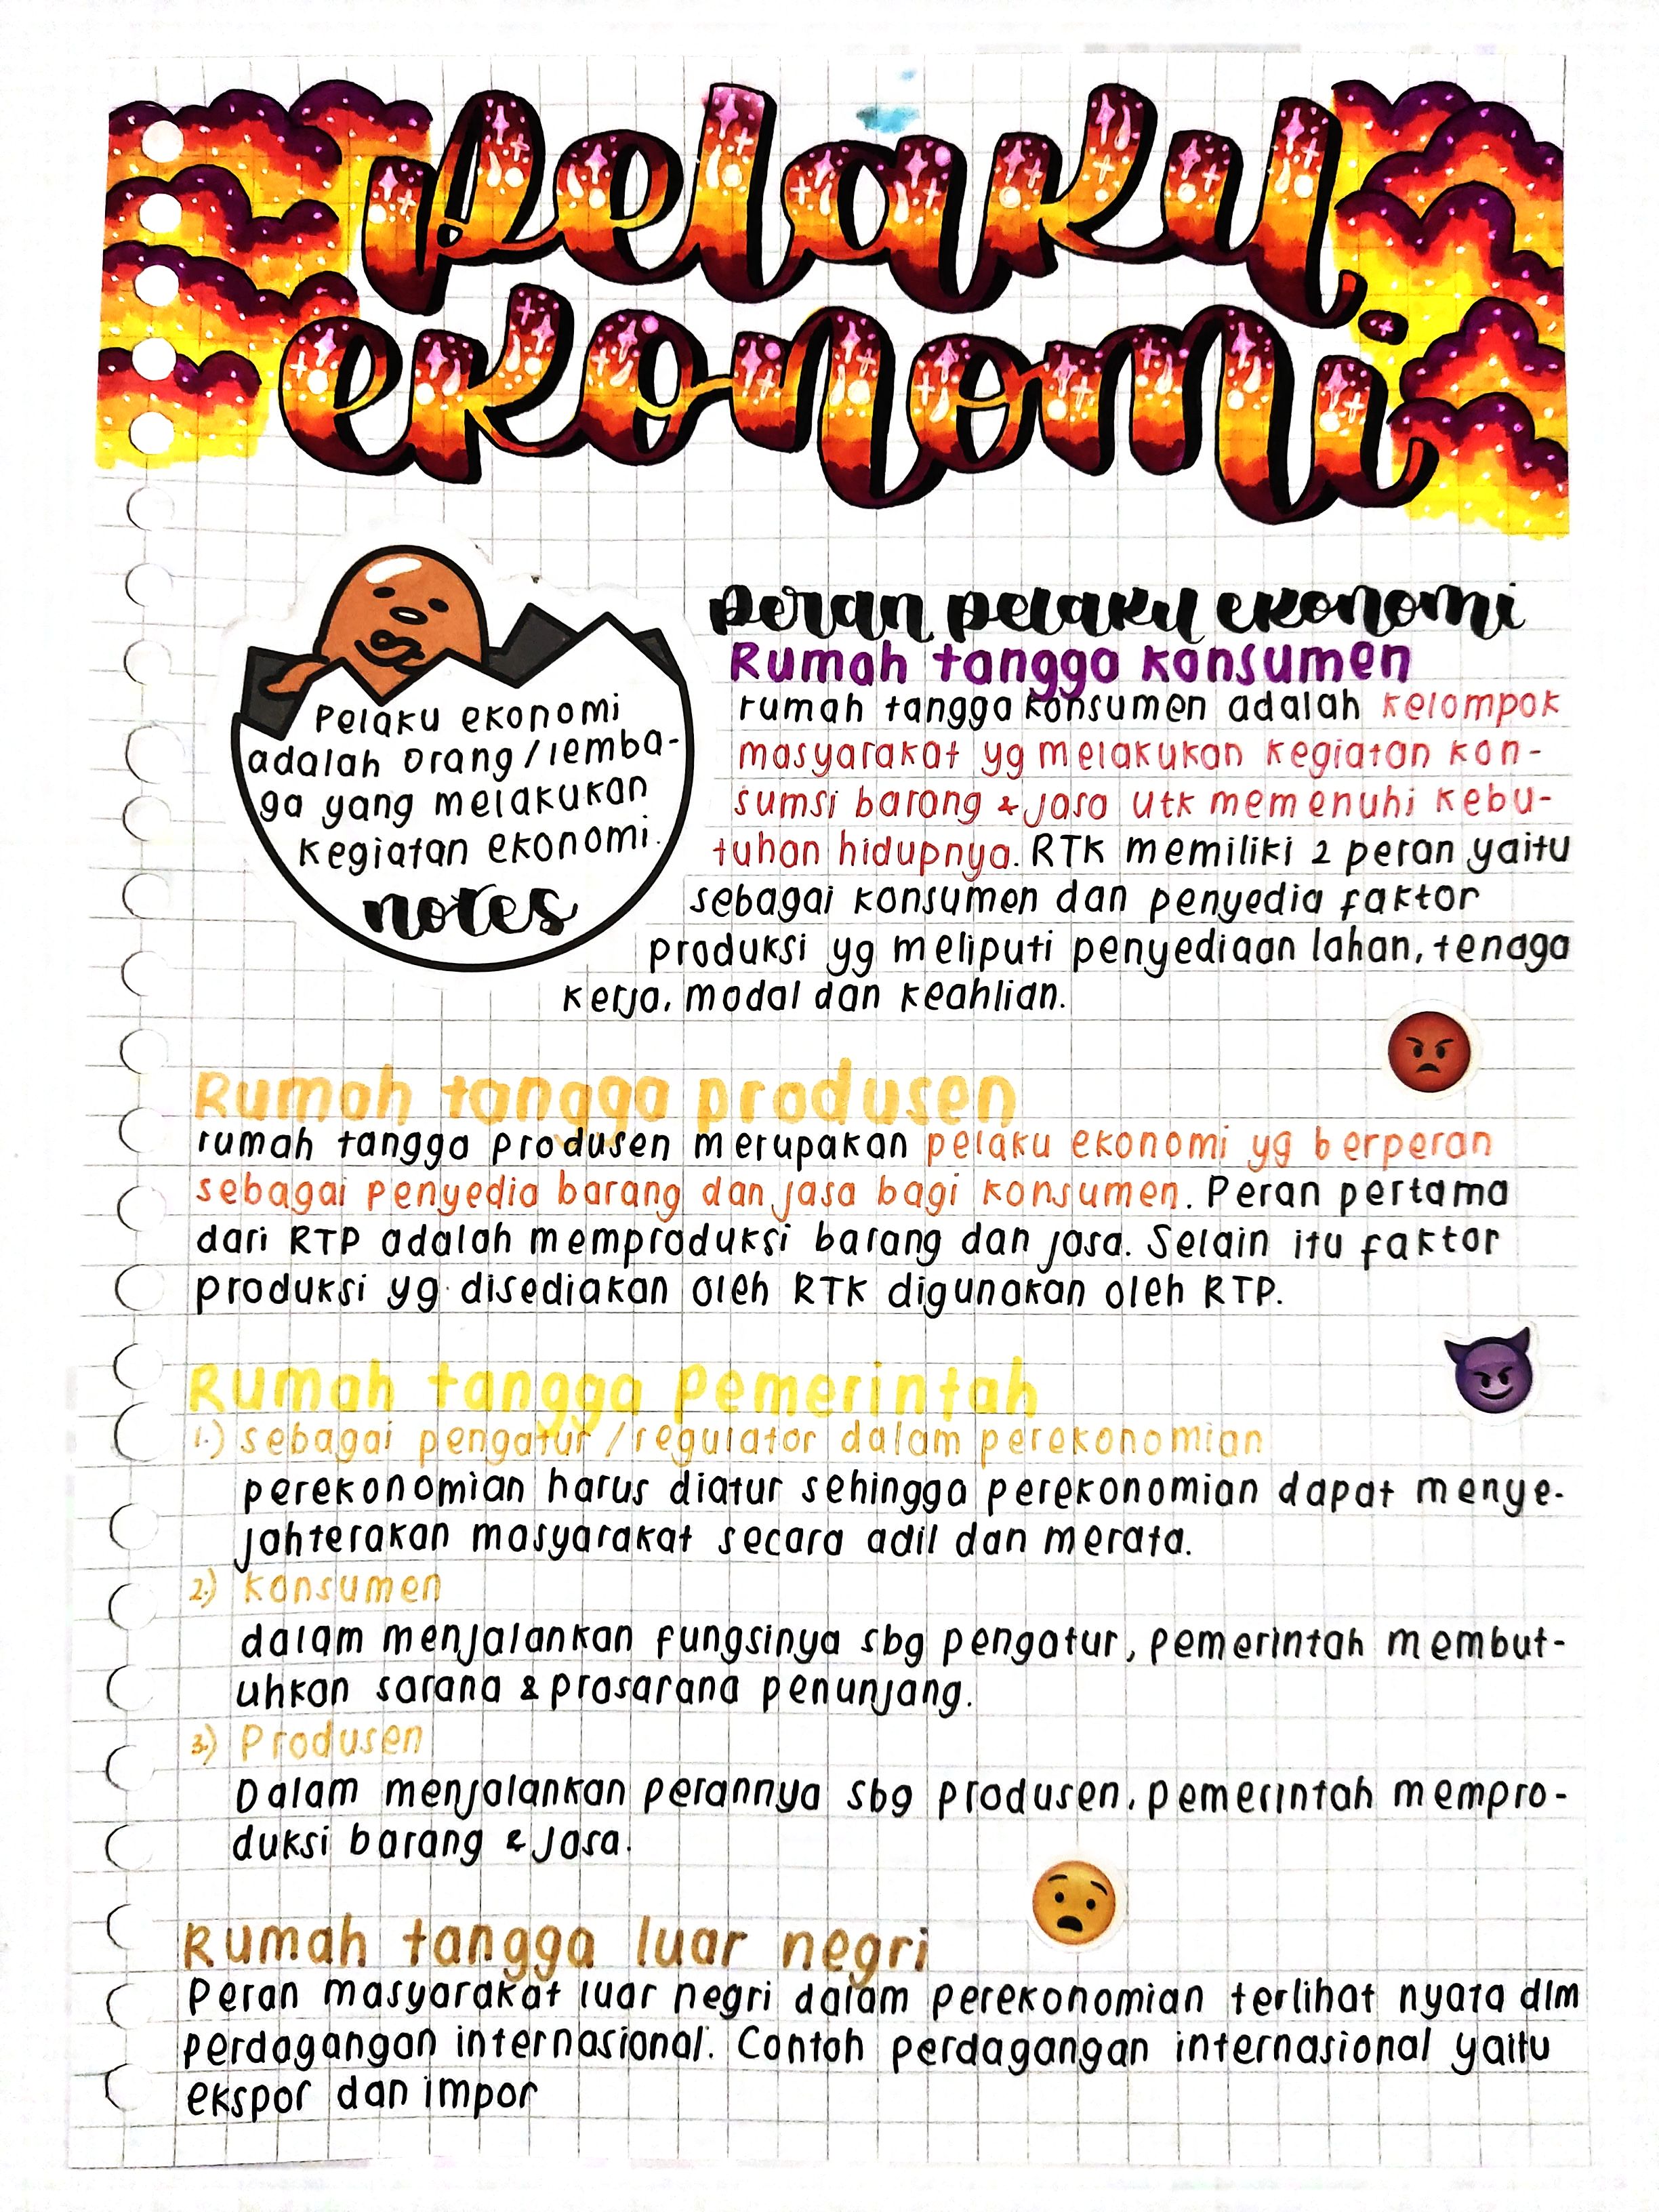 pelaku
ekonomi
Pelaku ekonomi
adalah orang/lemba-
ga yang melakukan
kegiatan ekonomi.
notes
peran pelaku ekonomi
Rumah tangga konsumen
rumah tangga konsumen adalah kelompok
masyarakat yg melakukan kegiatan kon-
sumsi barang & jasa utk memenuhi kebu-
tuhan hidupnya. RTK memiliki 2 peran yaitu
sebagai konsumen dan penyedia faktor
produksi yg meliputi penyediaan lahan, tenaga
kerja, modal dan keahlian.
Rumah tangga produsen
rumah tangga produsen merupakan pelaku ekonomi yg berperan
sebagai penyedia barang dan jasa bagi konsumen. Peran pertama
dari RTP adalah memproduksi barang dan jasa. Selain itu faktor
produksi yg disediakan oleh RTK digunakan oleh RTP.
Rumah tangga pemerintah
1.) sebagai pengatur/regulator dalam perekonomian
perekonomian harus diatur sehingga perekonomian dapat menye-
jahterakan masyarakat secara adil dan merata.
2.) konsumen
dalam menjalankan fungsinya sbg pengatur, pemerintah membut-
uhkan sarana & prasarana penunjang.
3.) Produsen
Dalam menjalankan perannya sbg produsen, pemerintah mempro-
duksi barang & jasa.
Rumah tangga luar negri
Peran masyarakat luar negri dalam perekonomian terlihat nyata dlm
perdagangan internasional. Contoh perdagangan internasional yaitu
ekspor dan impor